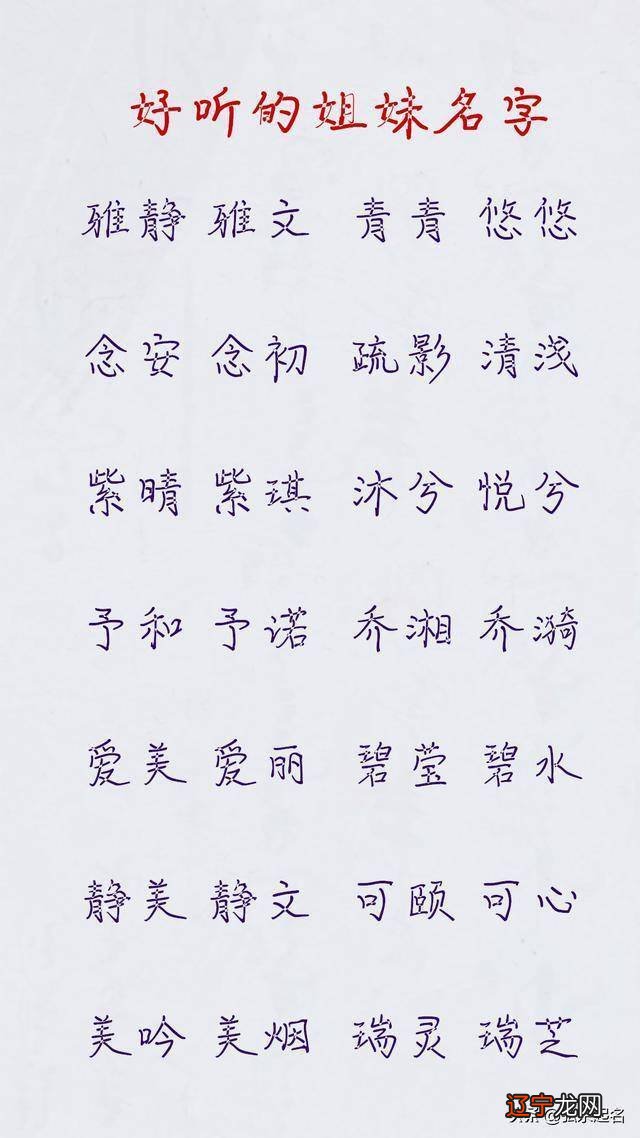 好听的姐妹名字
雅静 雅文 青青 悠悠
念安 念初 疏影 清浅
紫晴 紫琪 沐兮 悦兮
予和 予诺 乔湘 乔漪
爱美 爱丽 碧莹 碧水
静美 静文 可颐 可心
美吟 美烟 瑞灵 瑞芝
辽宁龙网